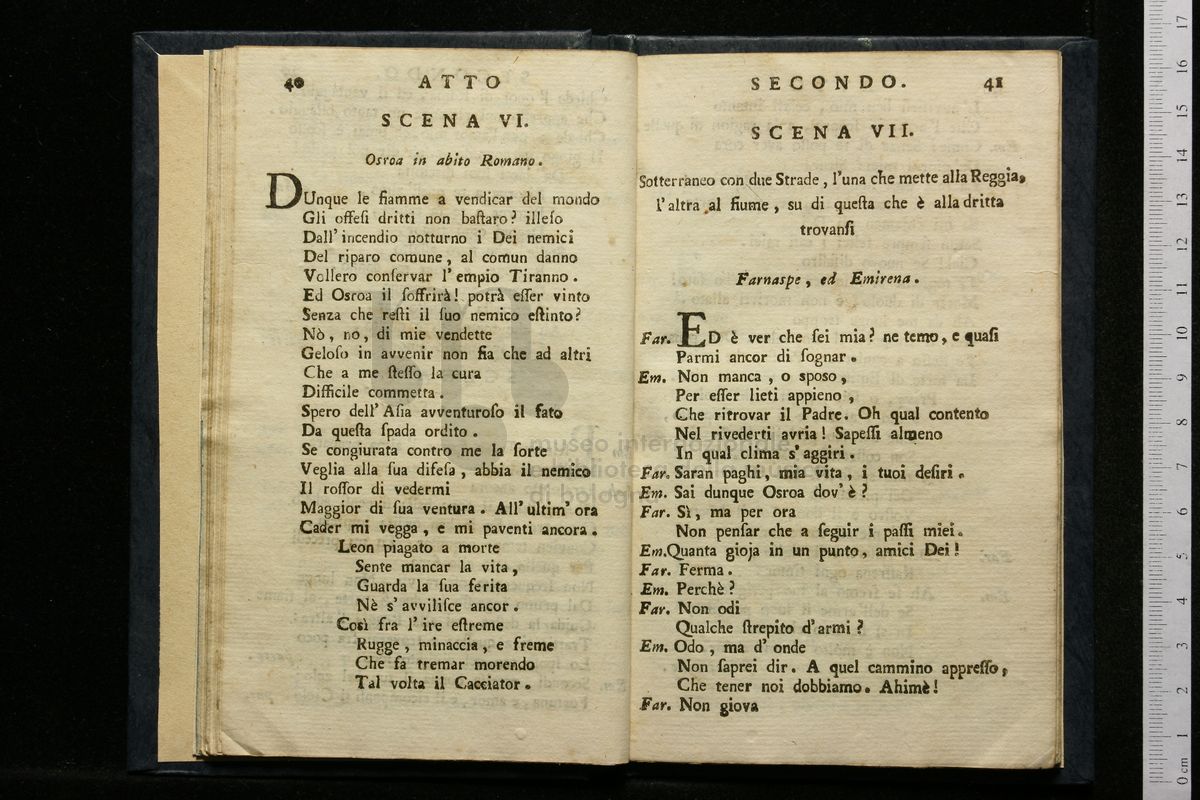 40 ATTO
SCENA VI.
Osroa in abito Romano.
DUnque le fiamme a vendicar del mondo
Gli offeſi dritti non baſtaro? illeſo
Dall' incendio notturno i Dei nemici
Del riparo comune, al comun danno
Vollero conſervar l' empio Tiranno.
Ed Osroa il ſoffrirà! potrà eſſer vinto
Senza che reſti il ſuo nemico eſtinto?
Nò, no, di mie vendette
Geloſo in avvenir non fia che ad altri
Che a me ſteſſo la cura
Difficile commetta.
Spero dell' Aſia avventuroſo il fato
Da queſta ſpada ordito.
Se congiurata contro me la ſorte
Veglia alla ſua difeſa, abbia il nemico
Il roſſor di vedermi
Maggior di ſua ventura. All' ultim' ora
Cader mi vegga, e mi paventi ancora.
Leon piagato a morte
Sente mancar la vita,
Guarda la ſua ferita
Nè s' avviliſce ancor.
Così fra l' ire eſtreme
Rugge, minaccia, e freme
Che fa tremar morendo
Tal volta il Cacciator.
SECONDO. 41
SCENA VII.
Sotterraneo con due Strade, l'una che mette alla Reggia,
l'altra al fiume, su di queſta che è alla dritta
trovanſi
Farnaspe, ed Emirena.
Far. ED è ver che ſei mia? ne temo, e quaſi
Parmi ancor di ſognar.
Em. Non manca, o sposo,
Per eſſer lieti appieno,
Che ritrovar il Padre. Oh qual contento
Nel rivederti avria! Sapeſſi almeno
In qual clima s' aggiri.
Far. Saran paghi, mia vita, i tuoi deſiri.
Em. Sai dunque Osroa dov' è?
Far. Sì, ma per ora
Non penſar che a ſeguir i paſſi miei.
Em. Quanta gioja in un punto, amici Dei!
Far. Ferma.
Em. Perchè?
Far. Non odi
Qualche ſtrepito d' armi?
Em. Odo, ma d' onde
Non ſaprei dir. A quel cammino appreſſo,
Che tener noi dobbiamo. Ahimè!
Far. Non giova
museo internazionale
e biblioteca della musica
di bologna
0 cm 1 2 3 4 5 6 7 8 9 10 11 12 13 14 15 16 17